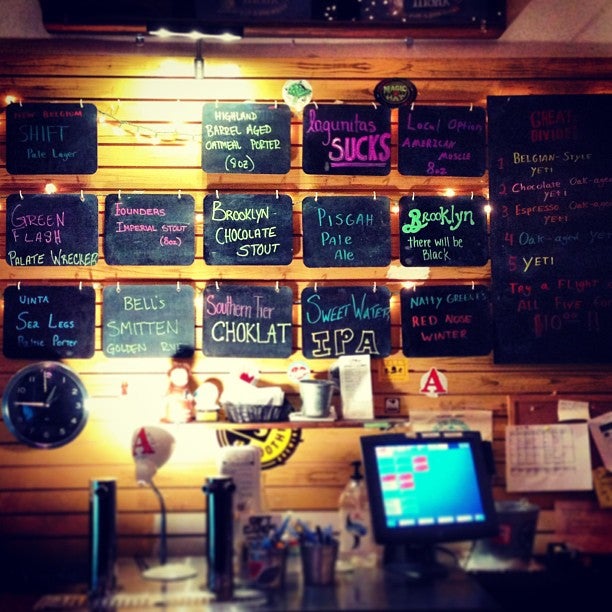 MAGIC
HAT
NEW BELGIUM
SHIFT
Pale Lager
HIGHLAND
BARREL AGED
OATMEAL PORTER
(8oz)
lagunitas
SUCKS
Local Option
AMERICAN
MUSCLE
8oz
GREEN
FLASH
PALATE WRECKER
FOUNDERS
IMPERIAL STOUT
(8oz)
BROOKLYN
CHOCOLATE
STOUT
PISGAH
PALE
ALE
BROOKLYN
there will be
Black
UINTA
SEA LEGS
Baltic Porter
BELL'S
SMITTEN
GOLDEN RYE
Southern Tier
CHOKLAT
SWEETWATER
IPA
NATTY GREENE'S
RED NOSE
WINTER
GREAT
DIVIDE
1 BELGIAN-STYLE
YETI
2 Chocolate Oak-aged
YETI
3 Espresso Oak-aged
YETI
4 Oak-aged Yeti
5 YETI
Try a FLIGHT
ALL FIVE for
$10
A
A